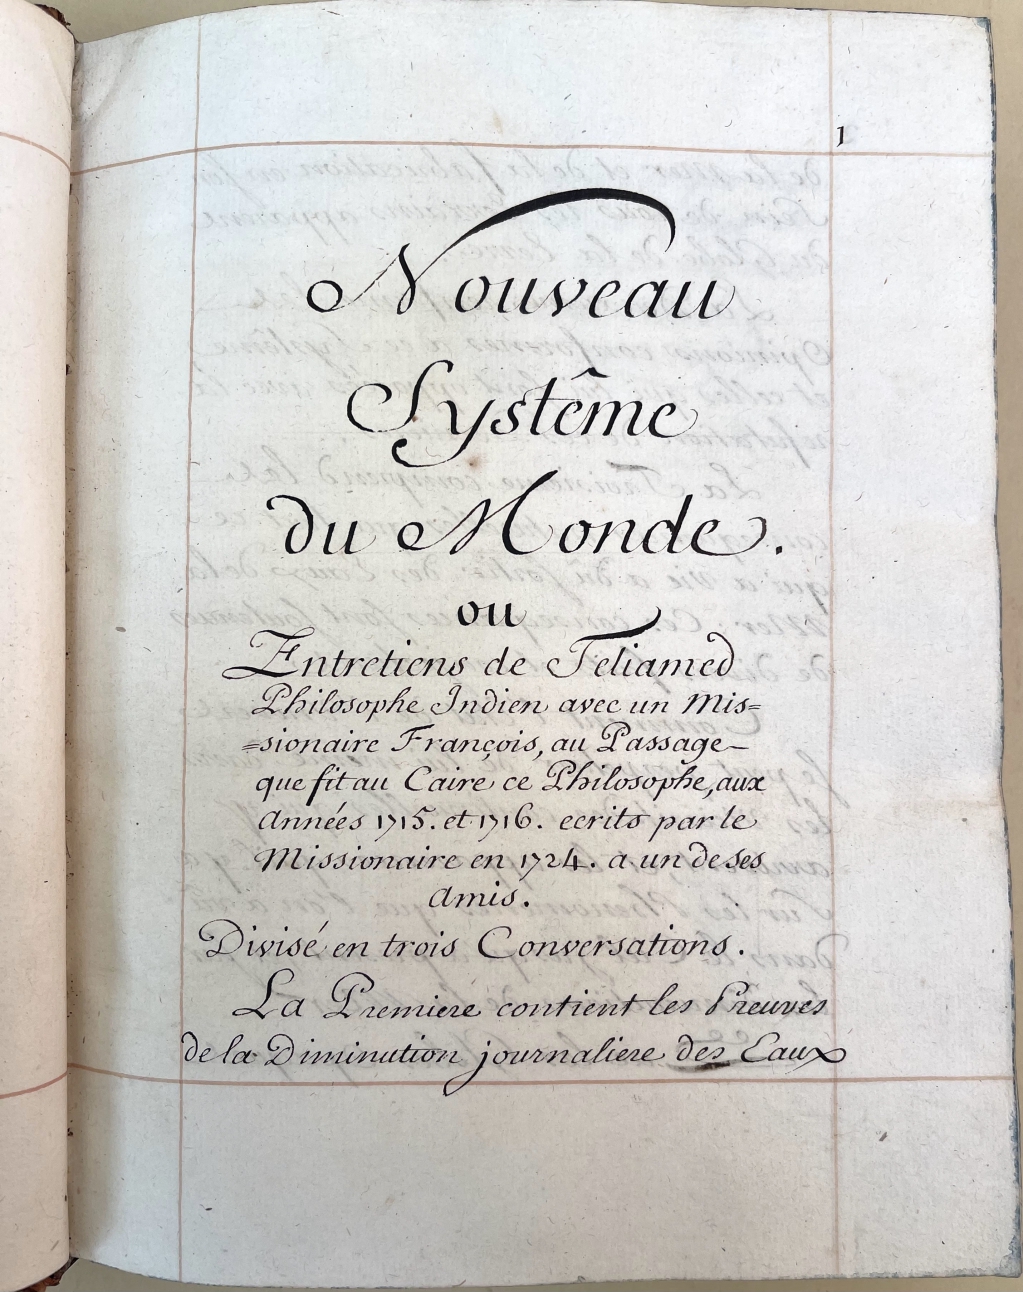 1
Nouveau
Systême
du Monde.
ou
Entretiens de Teliamed
Philosophe Indien avec un Mis=
=sionaire François, au Passage
que fit au Caire ce Philosophe, aux
années 1715. et 1716. ecrits par le
Missionaire en 1724. a un de ses
amis.
Divisé en trois Conversations.
La Premiere contient les Preuves
de la Diminution journaliere des Eaux